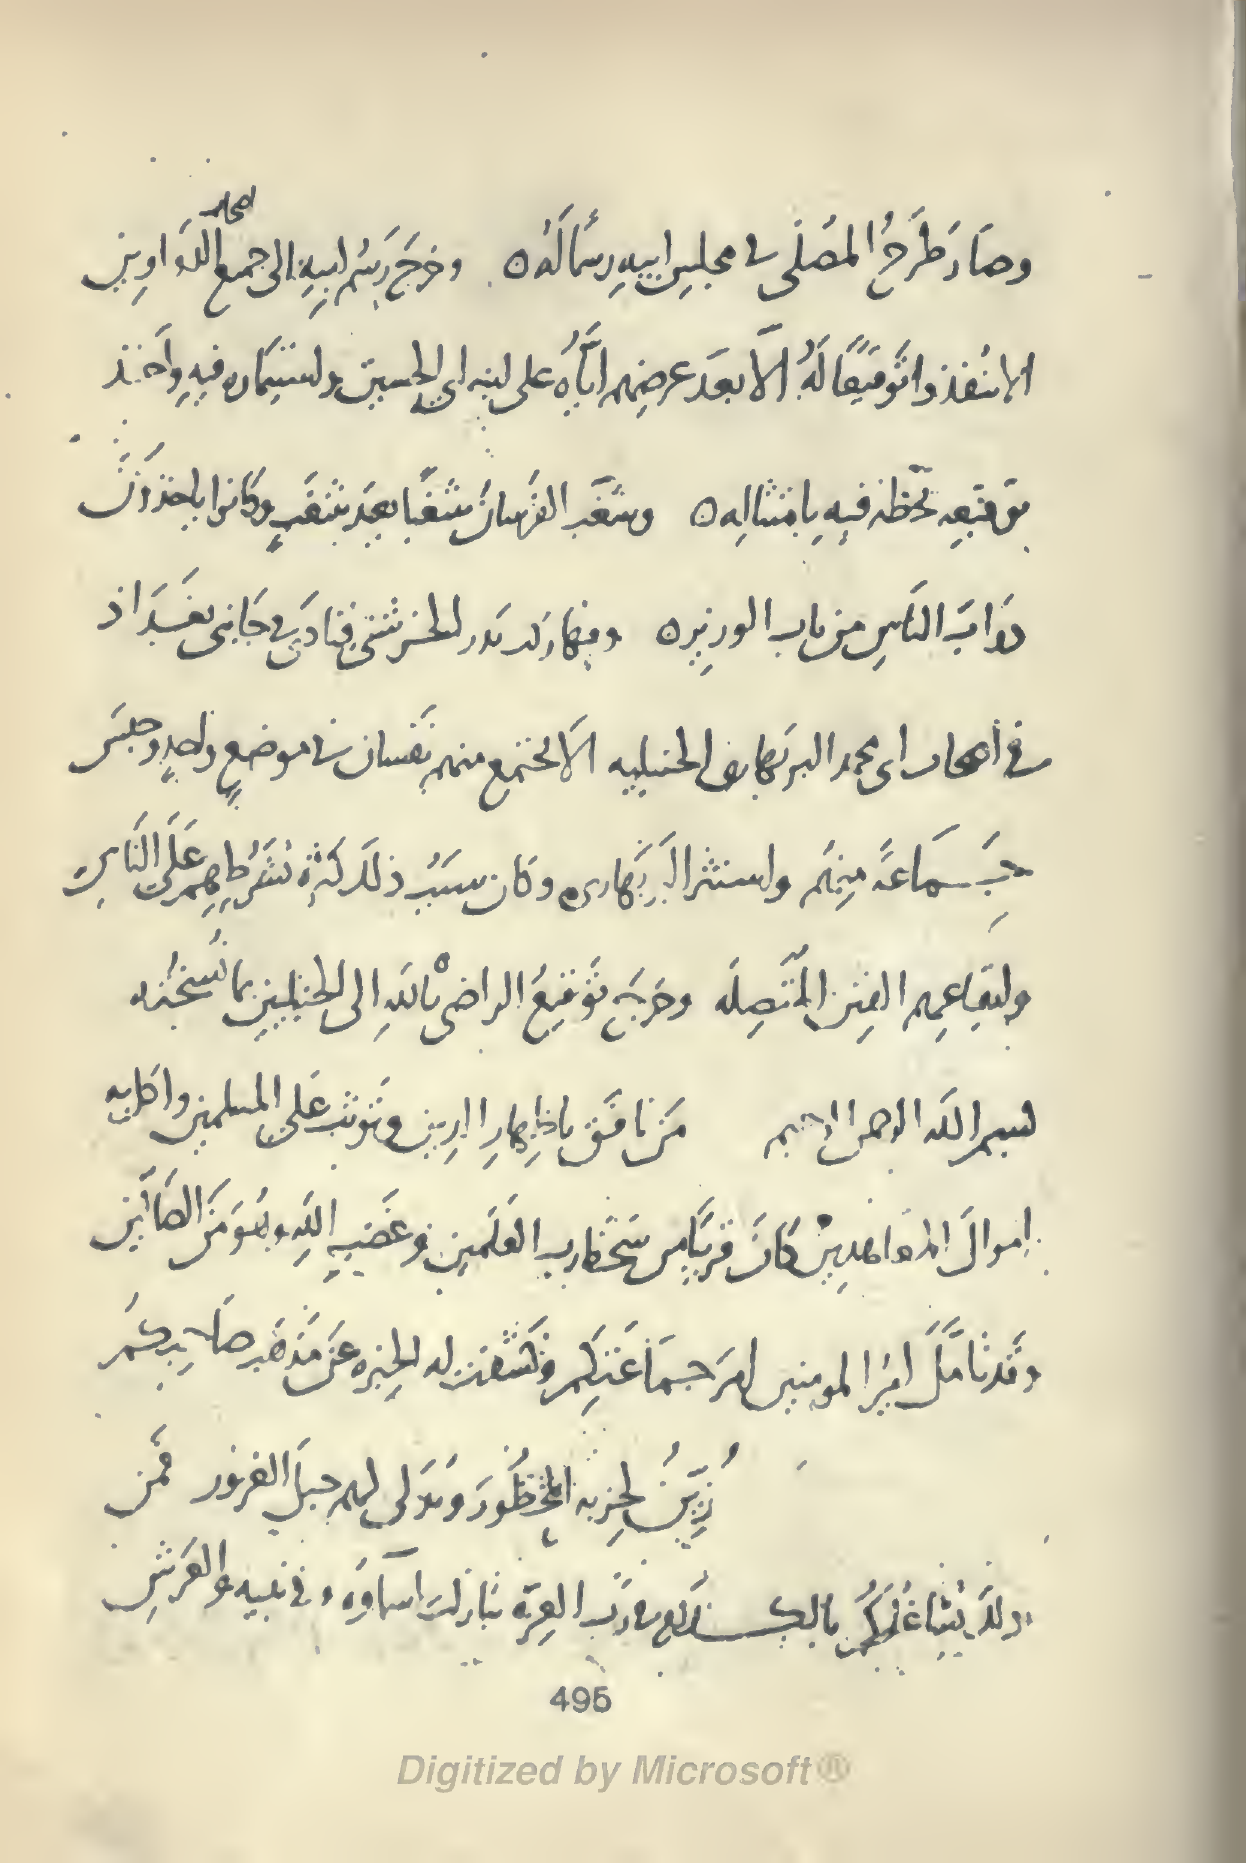 وصار طرح المصلى في مجلس ابيه رسماً له ه وخرج رسم ابيه الى جميع اصحاب الدواوين
الا ينفذوا توقيعًا له الّا بعد عرضهم اياه على ابنه ابي الحسين واستيماره فيه واخذ
توقيعه بخطه فيه بامتثاله ه وشغب الفرسان شغبًا بعد شغبٍ وكانوا ياخذون
دوابّ الناس من باب الوزير ه وفيها ركب بدر الخرشني فنادى في جانبي بغداذ
في اصحاب ابي محمد البربهاري الحنبليه الا يجتمع منهم نفسان في موضعٍ واحدٍ وحبس
جماعةً منهم واستتر البربهاري وكان سبب ذلك كثرة تشرطهم على الناس
وايقاعهم الفتن المتّصله وخرج توقيع الراضى بالله الى الحنبليين بما نسخته
بسم الله الرحمن الرحيم من نافق باظهار الدين وتوثب على المسلمين واكل به
اموال المعاهدين كان قريبًا من سخط رب العلمين وغضب الله وهو من الضالّين
وقد تامّل امير المومنين امر جماعتكم وكشفت له الخبره عن مذهب صاحبكم
زيّن لحزبه المحظور ويدلى لهم حبل الغرور فمن
ذلك تشاغلكم بالكلام في ربّ العزّة تباركت اسماوه وفي نبيه والعرش
495
Digitized by Microsoft®